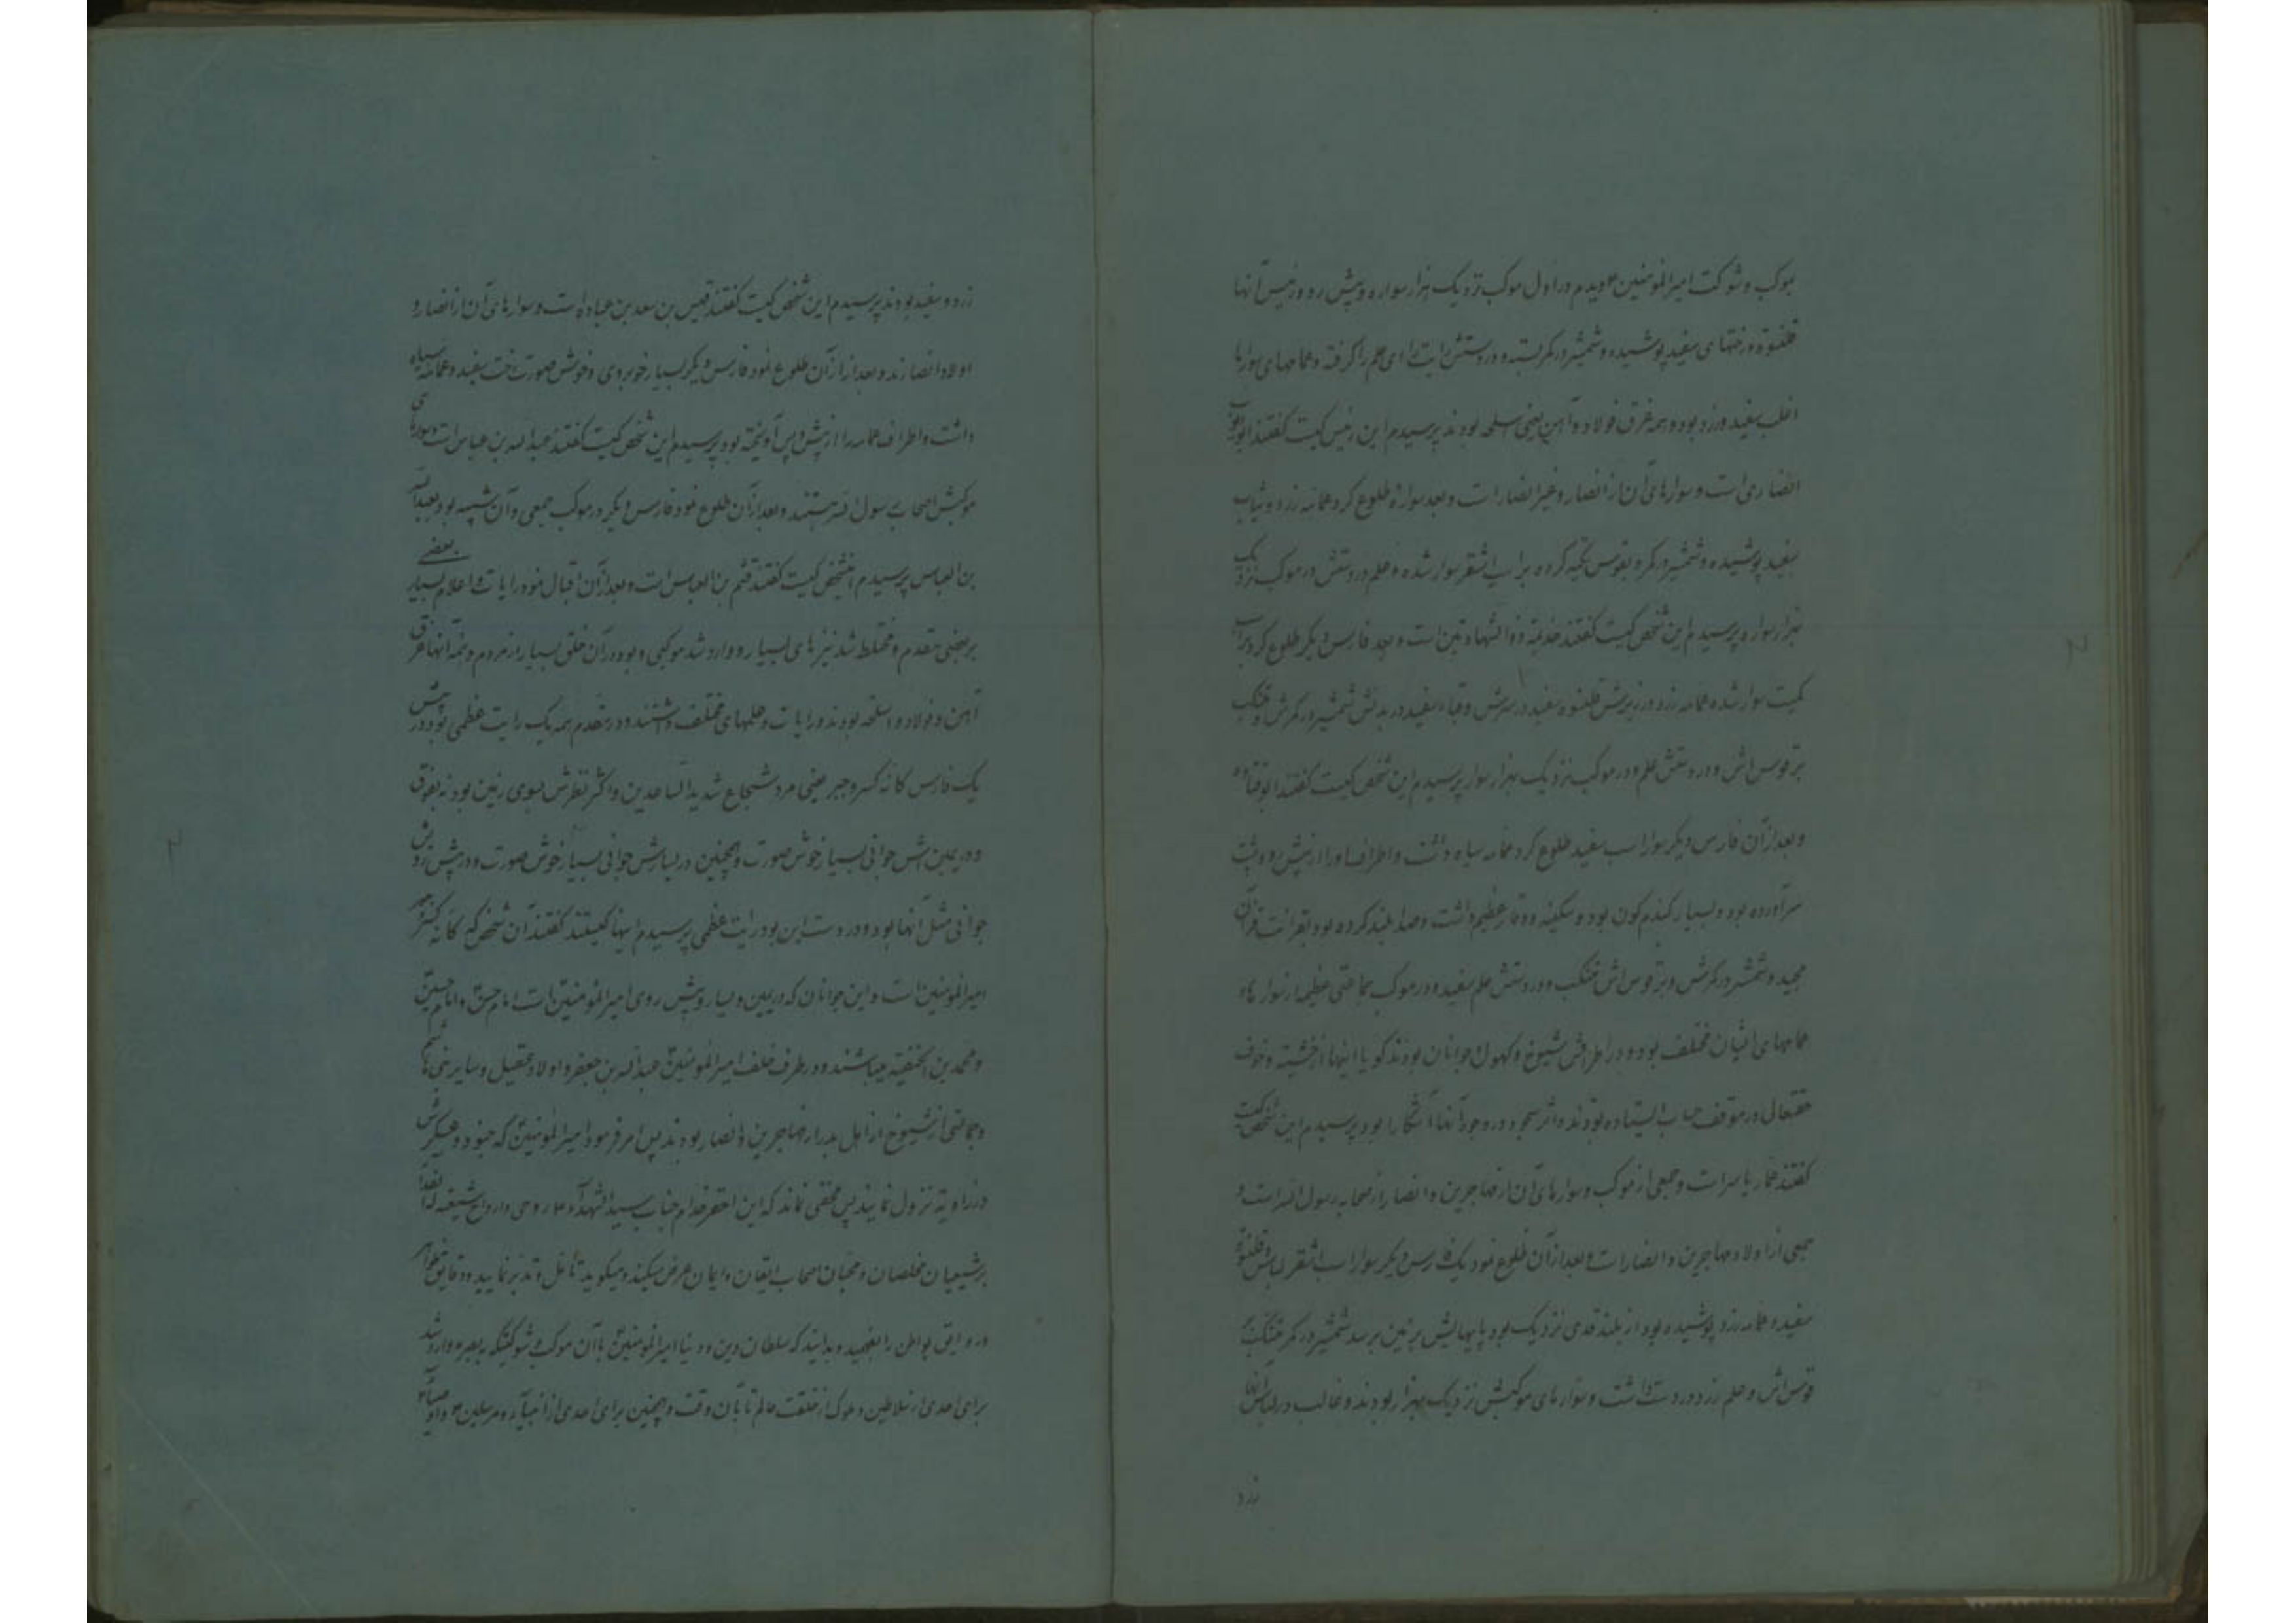 موکب و شوکت امیرالمؤمنین ۴ دیدم در اول موکب نزدیک بهزار سواره و پیش رو و رئیس آنها
قلنسوه و رختهای سفید پوشیده و شمشیر در کمر بسته و در دستش رایت رای علم را گرفته و عمامهای سوارها
اغلب سفید و زرد بود و همه غرق فولاد و آهن یعنی اسلحه بودند پرسیدم این رئیس کیست گفتند ابو ایوب
انصاری است و سوارهای آن از انصار و غیر انصار است و بعد سواره طلوع کرد عمامه زرد و ثیاب
سفید پوشیده و شمشیر در کمر و بقوس تکیه کرده بر اسب اشقر سوار شده و علم در دستش در موکب نزدیک
بهزار سوار و پرسیدم این شخص کیست گفتند خذیمة ذو الشهادتین است و بعد فارس دیگر طلوع کرد بر اسب
کمیت سوار شده عمامه زرد و در زیرش قلنسوه سفید در سرش و قباء سفید در بدنش شمشیر در کمرش و متنکب
بر قوس اش و در دستش علم و در موکب نزدیک بهزار سوار پرسیدم این شخص کیست گفتند ابو قتاده
و بعد از آن فارس دیگر سوار اسب سفید طلوع کرد عمامه سیاه داشت و اطراف او را از پیش و پشت
سر آورده بود و بسیار گندم کون بود و سکینه و وقار عظیم داشت و صدا بلند کرده بود بقرائت قرآن
مجید و شمشیر در کمرش و بر قوس اش متنکب و در دستش علم سفید و در موکب جماعتی عظیم از سوار که
عمامهای ایشان مختلف بود و در اطرافش شیوخ و کهول و جوانان بودند کویا اینها از خشیته و خوف
حقتعالی در موقف حساب ایستاده بودند و اثر سجود در وجوه آنها آشکارا بود پرسیدم این شخص کیست
گفتند عمار یاسر است و جمعی از موکب و سوارهای آن از مهاجرین و انصار از صحابه رسول الله است و
جمعی از اولاد مهاجرین و انصار است و بعد از آن طلوع نمود یک فارس دیگر سوار اسب اشقر لباس و قلنسوه
سفید و عمامه زرد پوشیده بود از بلند قدی نزدیک بود پاهایش بر زمین برسد شمشیر در کمر متنکب
قوس اش و علم زرد در دست داشت و سوارهای موکبش نزدیک بهزار بودند و غالب در لباس آنها
زرد
زرد و سفید بودند پرسیدم این شخص کیست گفتند قیس بن سعد بن عباده است و سوارهای آن از انصار و
اولاد انصارند و بعد از آن طلوع نمود فارس دیگر بسیار خوبروی و خوش صورت رخت سفید و عمامه سیاه
داشت و اطراف عمامه را از پیش و پس آویخته بود پرسیدم این شخص کیست گفتند عبدالله بن عباس است و سوارهای
موکبش اصحاب رسول الله هستند و بعد از آن طلوع نمود فارس دیگر در موکب جمعی و آن شبیه بود بعبدالله
بن العباس پرسیدم اینشخص کیست گفتند قثم بن العباس است و بعد از آن اقبال نمود رایات و اعلام بسیار بعضے
بر بعضی مقدم و مختلط شد نیزهای بسیار و وارد شد موکبی و بود در آن خلق بسیار از مردم و همه آنها غرق
آهن و فولاد و اسلحه بودند و رایات و علمهای مختلف داشتند و در مقدم همه یک رایت عظمی بود و در پیش
یک فارس کانه کسر و جبر یعنی مرد شجاع شدید الساعدین و اکثر نظرش بسوی زمین بود نه بفوق
و در یمین اش جوانی بسیار خوش صورت و همچنین در یسارش جوانی بسیار خوش صورت و در پیش رویش
جوانی مثل آنها بود و در دست این بود رایت عظمی پرسیدم اینها کیستند گفتند آن شخص که کانه کسر و جبر
امیرالمؤمنین است و این جوانان که در یمین و یسار و پیش روی امیرالمؤمنین است امام حسن و امام حسین
و محمد بن الحنفیه میباشند و در طرف خلف امیرالمؤمنین عبدالله بن جعفر و اولاد عقیل و سایر بنی هاشم
و جماعتی از شیوخ از اهل بدر از مهاجرین و انصار بودند پس امر فرمود امیرالمؤمنین که جنود و عسکرش
در زاویه نزول نمایند پس مخفی نماند که این احقر خدام جناب سید الشهدآء ۴ روحی و ارواح شیعته له الفدا
بر شیعیان مخلصان و محبان اصحاب ایقان و ایمان عرض میکند و میکوید تأمل و تدبر نمایید و دقایق ظواهر
و روایق بواطن را بفهمید و بدانید که سلطان دین و دنیا امیرالمؤمنین با آن موکب و شوکتیکه ببصره وارد شد
برای احدی از سلاطین و ملوک از خلقت عالم تا بآن وقت و همچنین برای احدی از انبیآء و مرسلین ۴ و اوصیآء